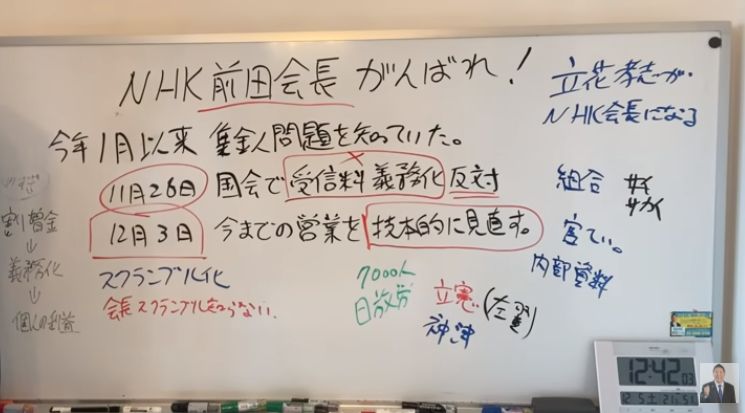 NHK前田会長がんばれ!
立花孝志が
NHK会長になる
今年1月以来 集金人問題を知っていた。
11月26日 国会で受信料義務化反対
×
組合 サイ
サカイ
割り増金
↓
義務化
↓
個人の利益
12月3日 今までの営業を抜本的に見直す。
害てい。
内部資料
スクランブル化
会長スクランブルをやらない.
7000人
日放労
立憲(左翼)
神津
12:42 03
12 5土 21.51